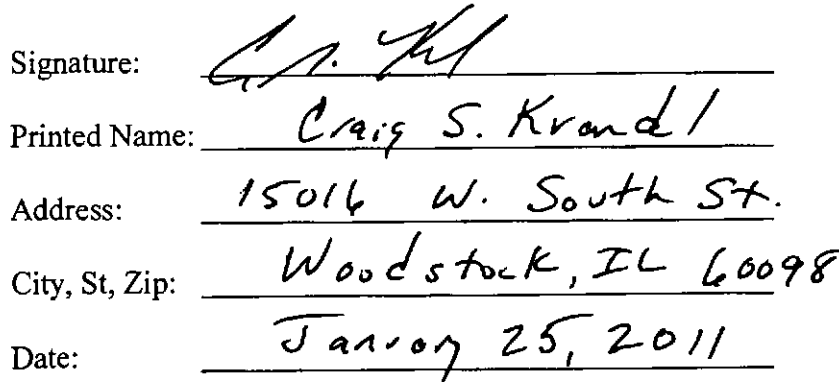 Signature:
Printed Name: Craig S. Krandl
Address: 15016 W. South St.
City, St, Zip: Woodstock, IL 60098
Date: January 25, 2011